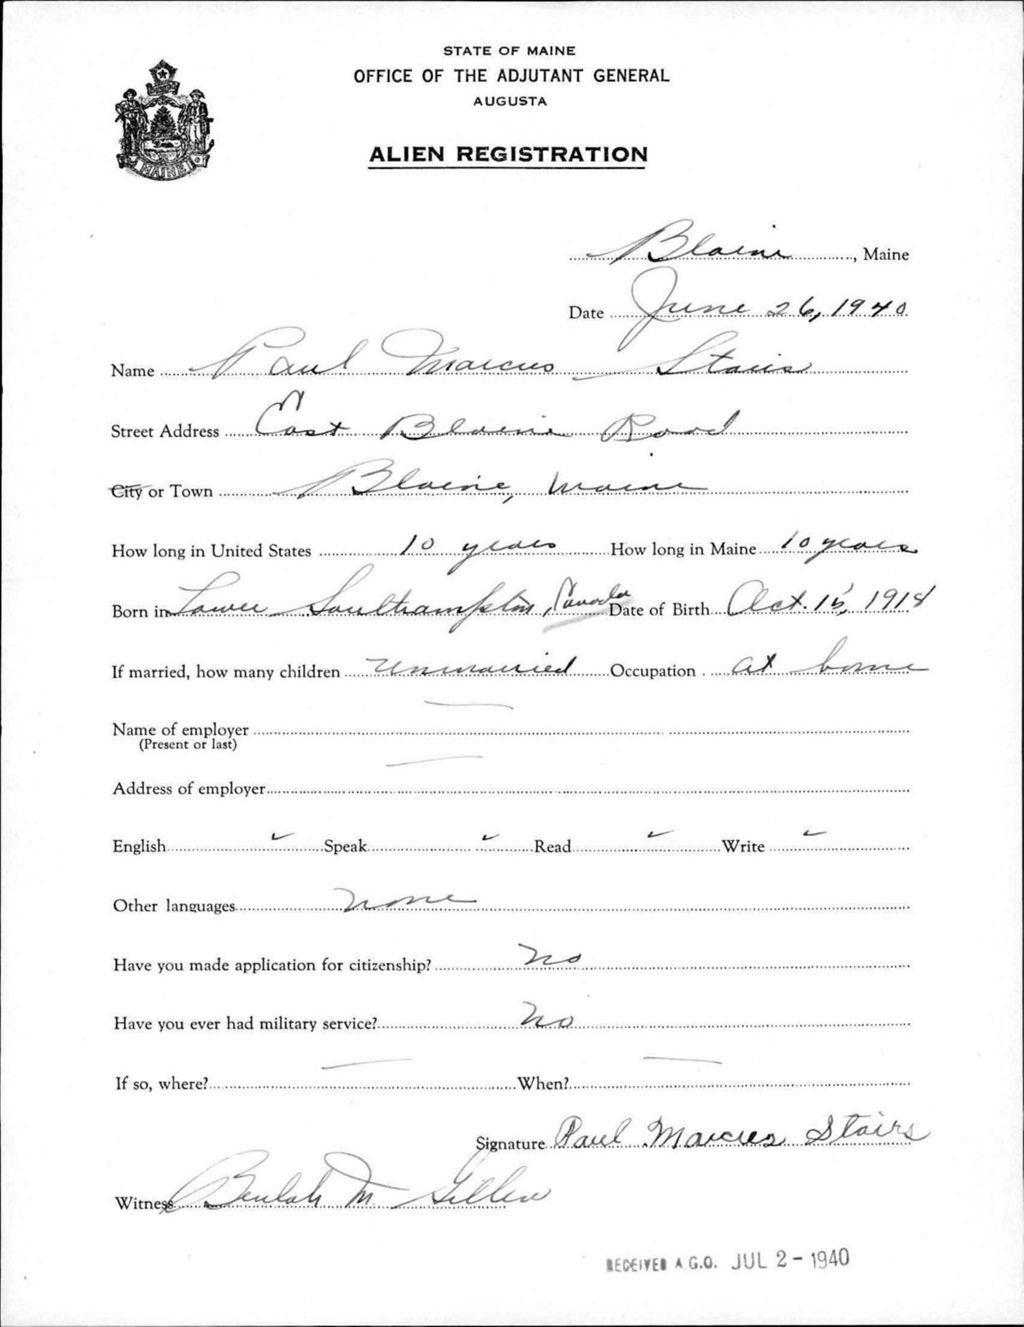 STATE OF MAINE
OFFICE OF THE ADJUTANT GENERAL
AUGUSTA
ALIEN REGISTRATION
MAINE
Blaine, Maine
Date June 26, 1940
Name Paul Marcus Stairs
Street Address East Blaine Road
City or Town Blaine, Maine
How long in United States 10 years How long in Maine 10 years
Born in Lower Southampton, Canada Date of Birth Oct. 15, 1918
If married, how many children Unmarried Occupation at home
Name of employer —
(Present or last)
Address of employer —
English ✓ Speak ✓ Read ✓ Write ✓
Other languages none
Have you made application for citizenship? No
Have you ever had military service? No
If so, where? — When? —
Signature Paul Marcus Stairs
Witness Beulah M Gillen
RECEIVED A.G.O. JUL 2 - 1940